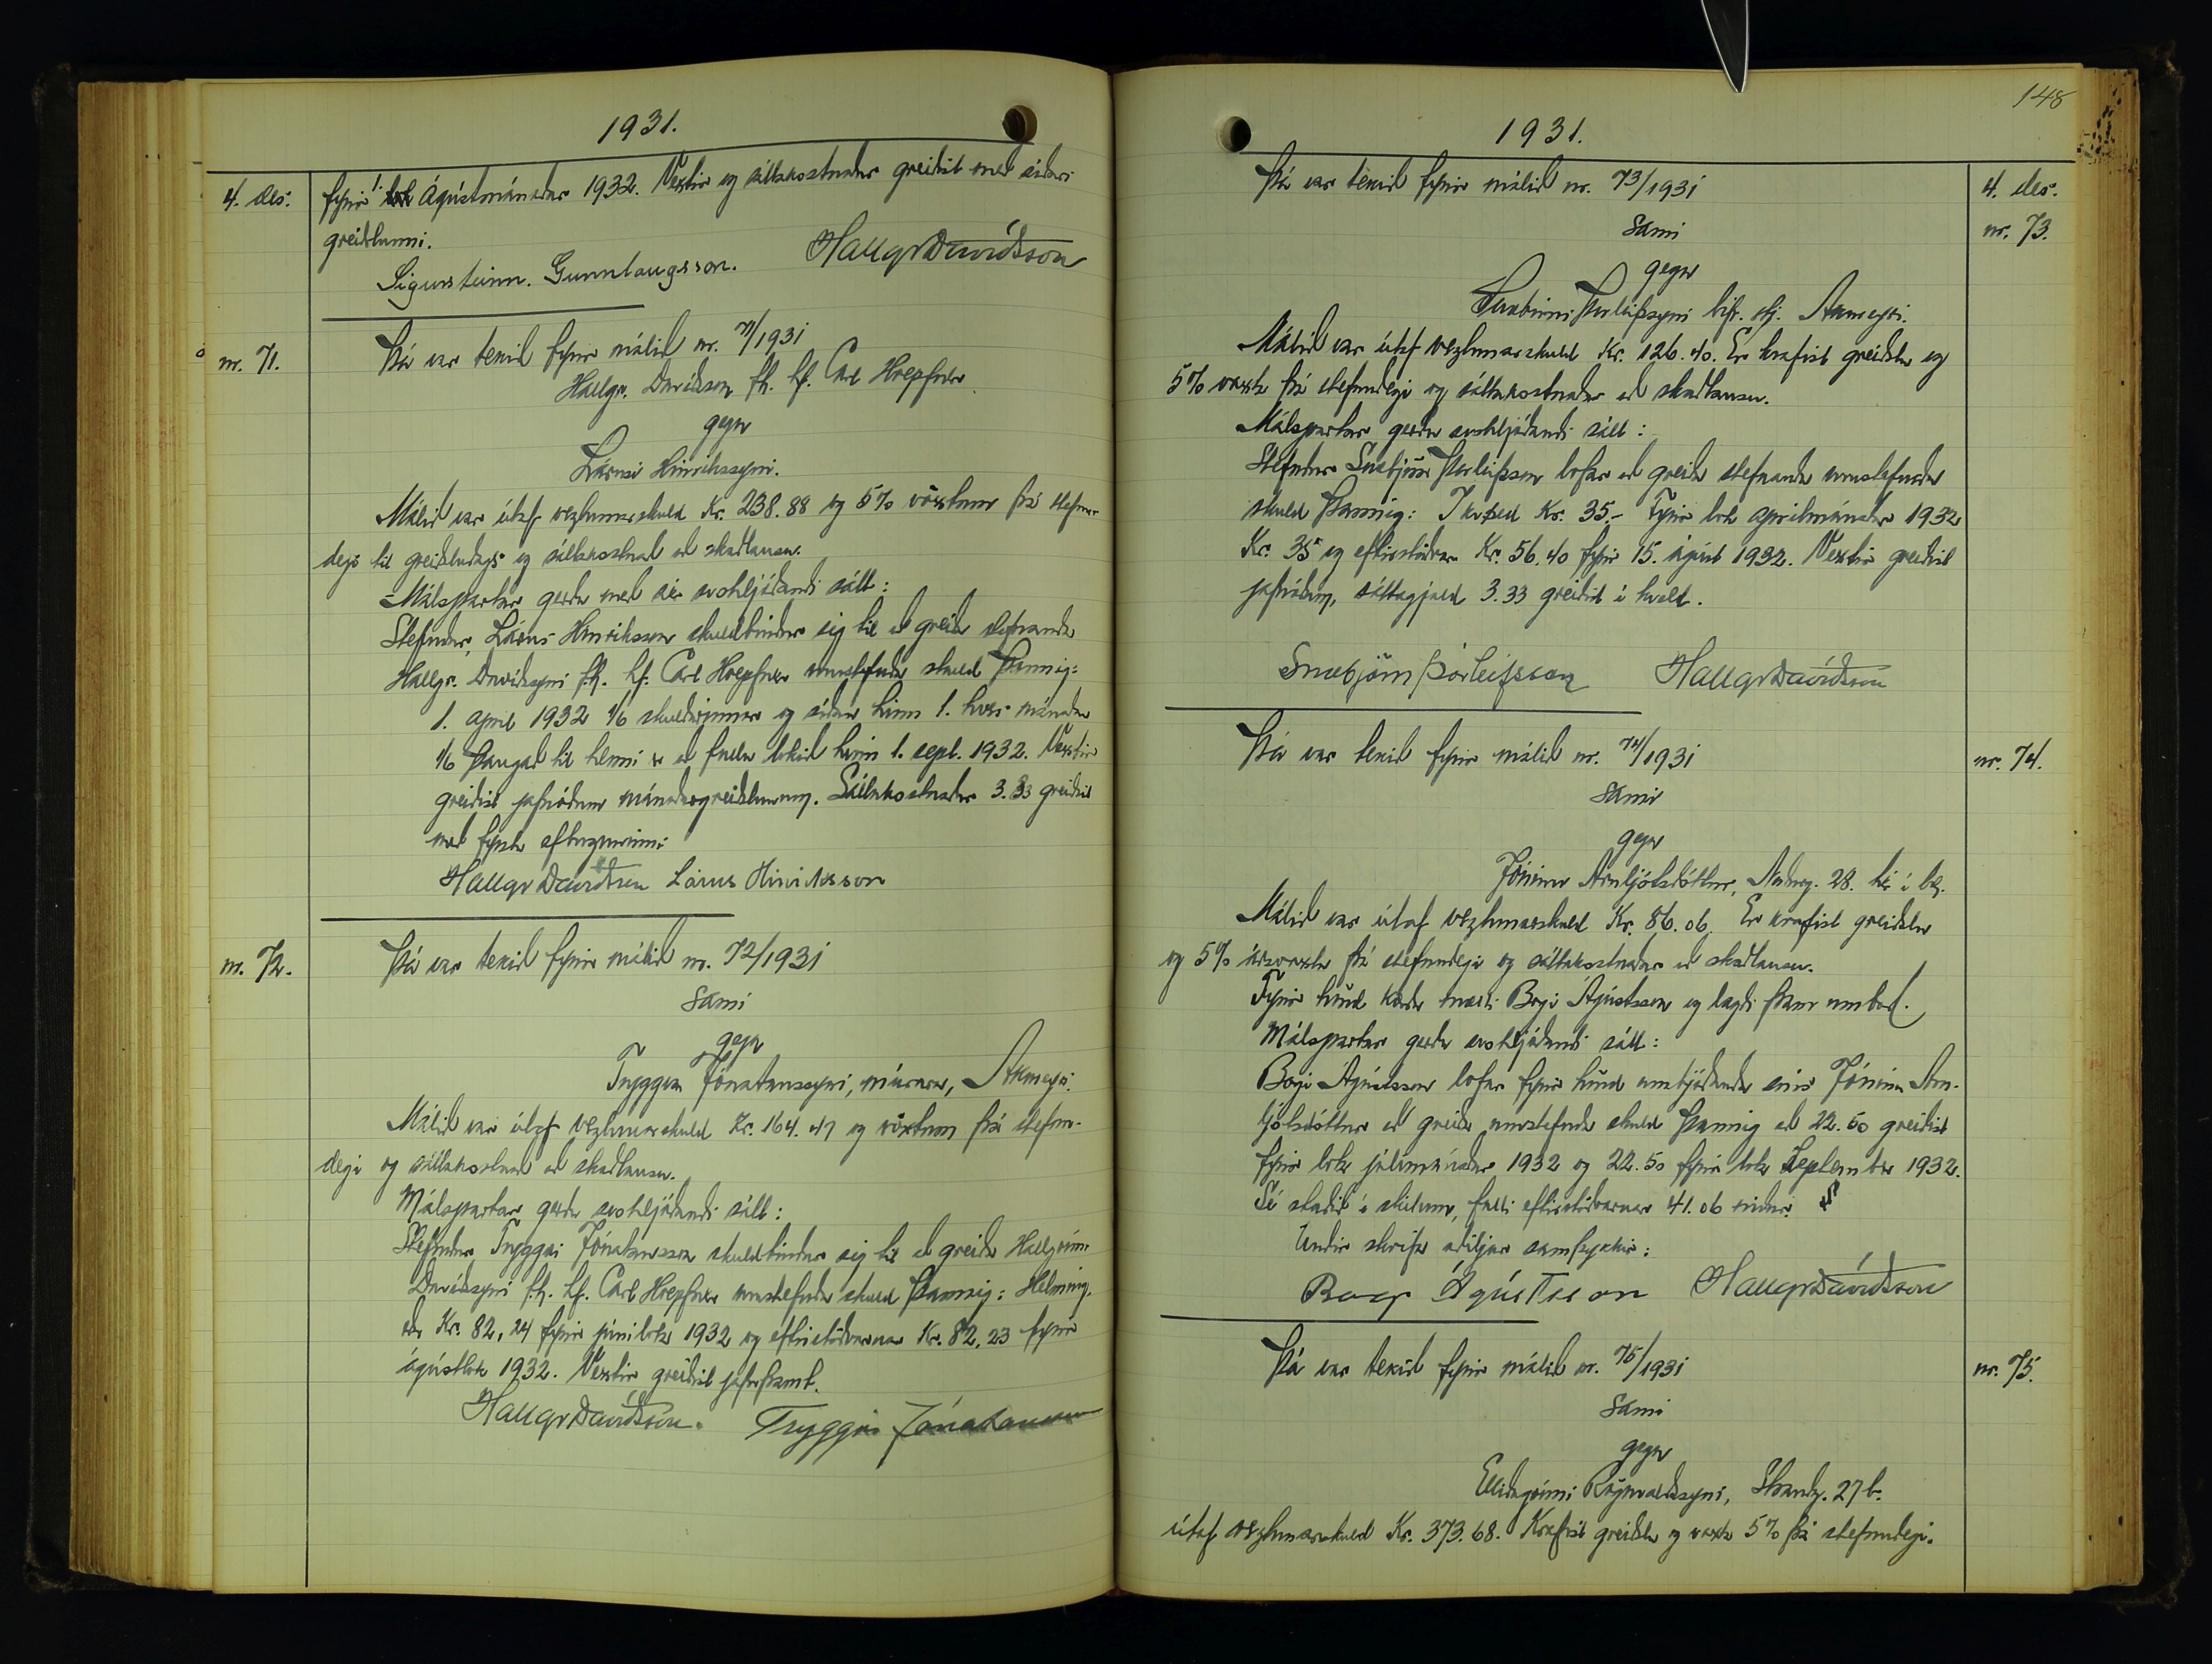 1931.
4. des.
fyrir 1. ágústmánaðar 1932. Vextir og sáttakostnaður greiðist með síðari
greiðslunni.
Sigursteinn. Gunnlaugsson. HallgrDavíðsson
nr. 71.
Þá var tekið fyrir málið nr. 71/1931
Hallgr. Davíðsson fh. hf. Carl Höepfner
gegn
Lárusi Hinrikssyni.
Málið var útaf verzlunarskuld Kr. 238.88 og 5% vöxtum frá stefnu-
degi til greiðsludags og sáttakostnað að skaðlausu.
Málspartar gerðu með sér svohljóðandi sátt:
Stefndur, Lárus Hinriksson skuldbindur sig til að greiða stefnanda
Hallgr. Davíðssyni fh. hf. Carl Höepfner umstefnda skuld þannig:
1. april 1932 1/6 skuldarinnar og síðan hinn 1. hvers mánaðar
1/6 þangað til henni er að fullu lokið hinn 1. sept. 1932. Vextir
greiðist jafnóðum mánaðargreiðslunum. Sáttakostnaður 3.33 greiðist
með fyrstu afborguninni
HallgrDavíðsson Lárus Hinriksson
nr. 72.
Þá var tekið fyrir málið nr. 72/1931
Sami
gegn
Tryggva Jónatanssyni, múrara, Akureyri.
Málið var útaf verzlunarskuld Kr. 164.47 og vöxtum frá stefnu-
degi og sáttakostnað að skaðlausu.
Málspartar gerðu svohljóðandi sátt:
Stefndur Tryggvi Jónatansson skuldbindur sig til að greiða Hallgrími
Davíðssyni fh. hf. Carl Höepfner umstefnda skuld þannig: Helming,
eða Kr. 82,24 fyrir júnílok 1932 og eftirstöðvarnar Kr. 82,23 fyrir
ágústlok 1932. Vextir greiðist jafnframt.
HallgrDavíðsson. Tryggvi Jónatansson
148
1931.
4. des.
nr. 73.
Þá var tekið fyrir málið nr. 73/1931
Sami
gegn
Snæbirni Þorleifssyni bifr. stj. Akureyri.
Málið var útaf verzlunarskuld Kr. 126.40. Er krafist greiðslu og
5% vaxta frá stefnudegi og sáttakostnaðar að skaðlausu.
Málspartar gerðu svohljóðandi sátt:
Stefndur Snæbjörn Þorleifsson lofar að greiða stefnanda umstefnda
skuld þannig: Í kvöld Kr. 35.- Fyrir lok aprílmánaðar 1932
Kr. 35 og eftirstöðvar Kr. 56.40 fyrir 15. ágúst 1932. Vextir greiðist
jafnóðum, sáttagjald 3.33 greiðist í kvöld.
Snæbjörn Þorleifsson HallgrDavíðsson
nr. 74.
Þá var tekið fyrir málið nr. 74/1931
Sami
gegn
Jónínu Arnljótsdóttur, 28. hér í bæ.
Málið var útaf verzlunarskuld Kr. 86.06. Er krafist greiðslu
og 5% ársvaxta frá stefnudegi og sáttakostnaðar að skaðlausu.
Fyrir hönd kærðu mætti Bogi Ágústsson og lagði fram umboð.
Málspartar gerðu svohljóðandi sátt:
Bogi Ágústsson lofar fyrir hönd umbjóðanda síns Jónínu Arn-
ljótsdóttur að greiða umstefnda skuld þannig að 22.50 greiðist
fyrir lok júlímánaðar 1932 og 22.50 fyrir lok September 1932.
Sé staðið í skilum, falli eftirstöðvarnar 41.06 niður.
Undir skrifa aðiljar samþykkir:
Bogi Ágústsson HallgrDavíðsson
nr. 75.
Þá var tekið fyrir málið nr. 75/1931
Sami
gegn
Elíðagrími Rögnvaldssyni, Strandg. 27 b.
útaf verzlunarskuld Kr. 373.68. Krafist greiðslu og vaxta 5% frá stefnudegi.